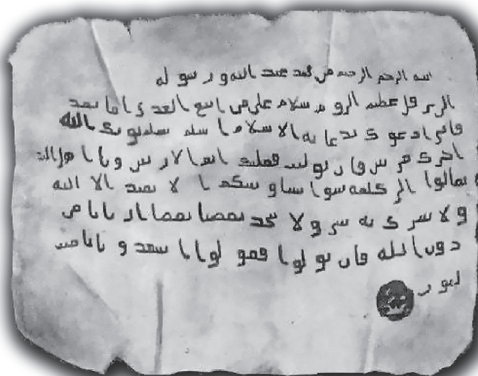 بسم الله الرحمن الرحيم من محمد عبد الله ورسوله
الى هرقل عظيم الروم سلام على من اتبع الهدى اما بعد
فانى ادعوك بدعاية الاسلام اسلم تسلم يوتك الله
اجرك مرتين فان توليت فعليك اثم الاريسيين ويا اهل
تعالوا الى كلمة سوا بيننا وبينكم ا لا نعبد الا الله
ولا نشرك به شيا ولا يتخذ بعضنا بعضا اربابا من
دون الله فان تولوا فقولوا اشهدوا بانا مس
لمون